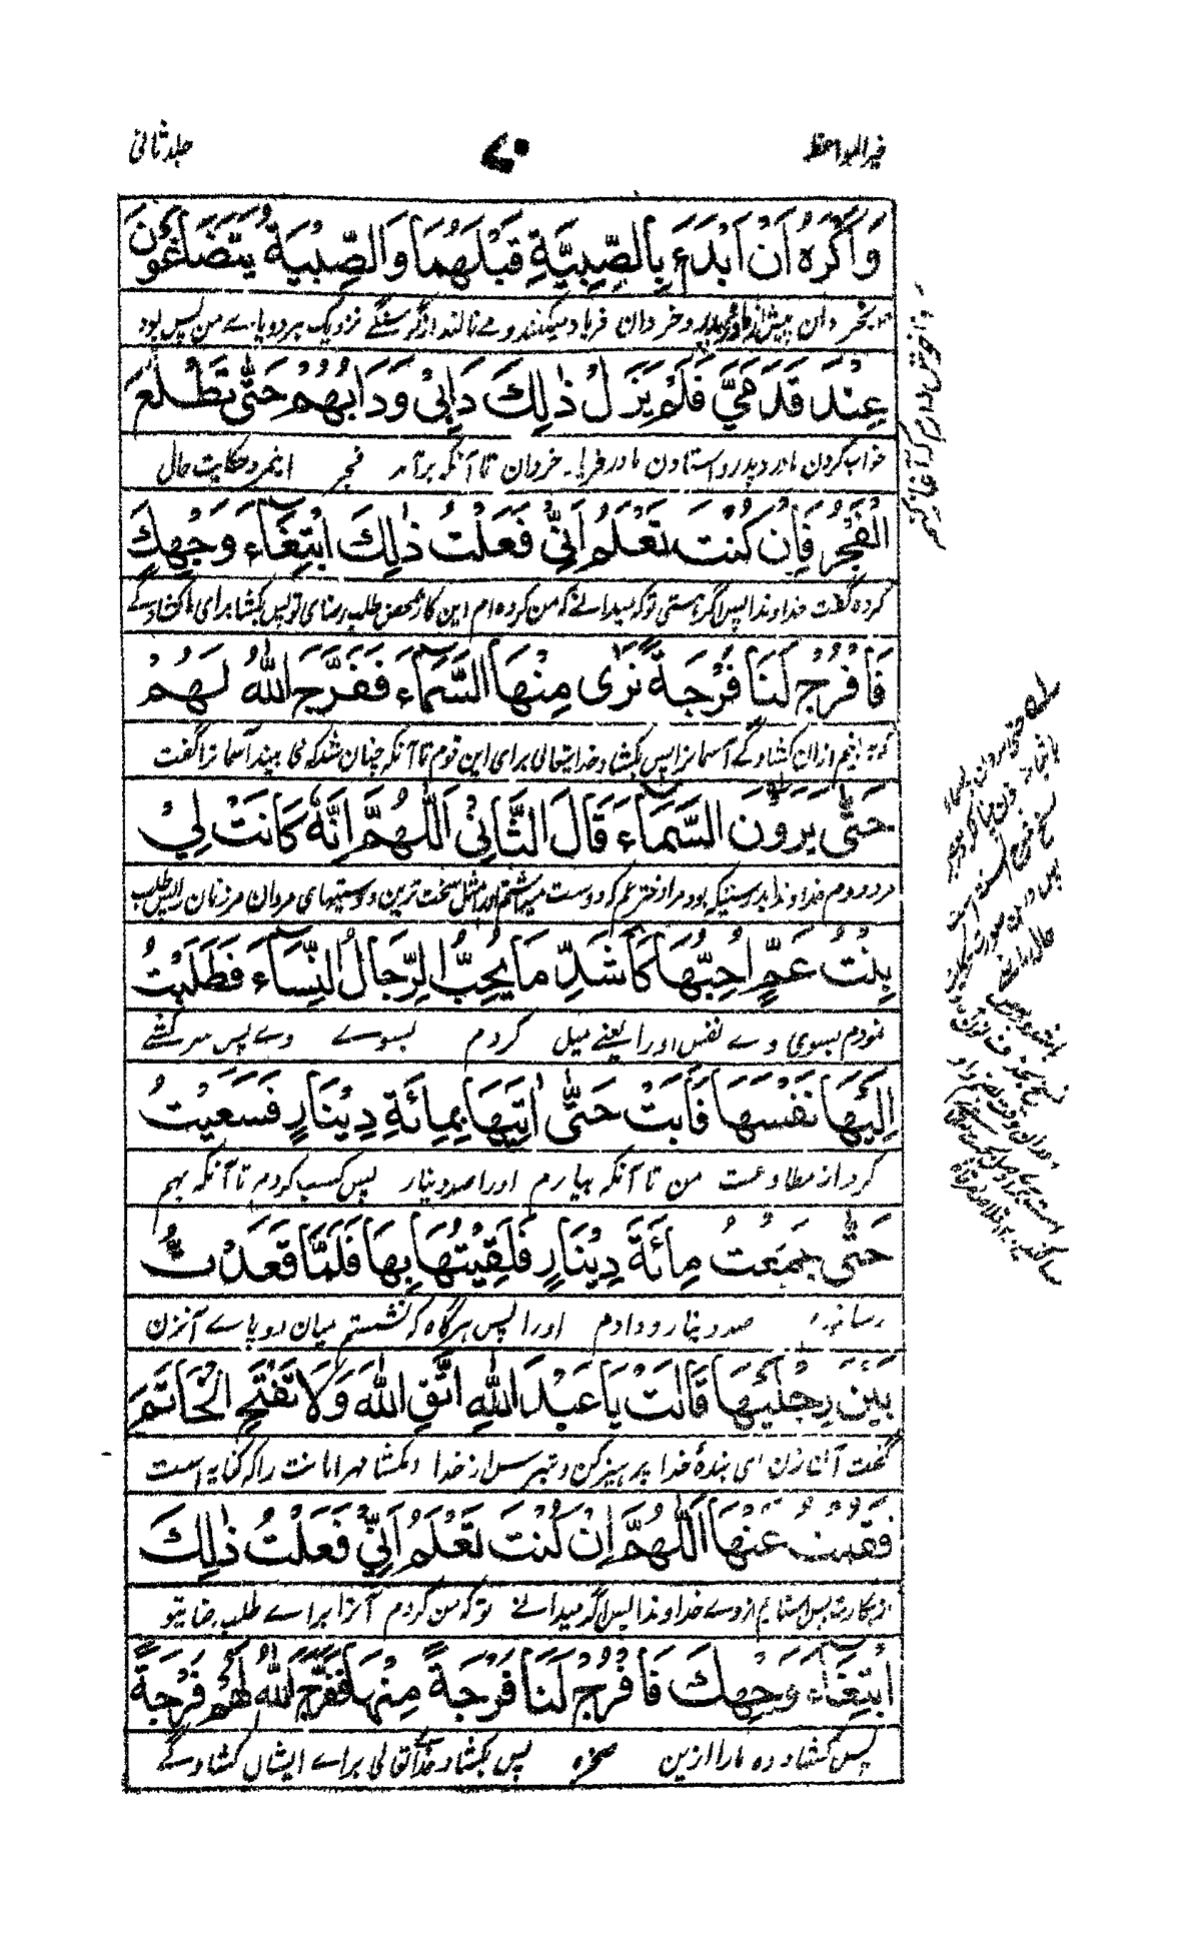 خیر المواعظ
۷۰
جلد ثانی
وَاَكْرَهُ اَنْ اَبْدَءَ بِالصِّبِيَّةِ قَبْلَهُمَا وَالصِّبْيَةُ يَتَضَاغَوْنَ
بخردان پیش از مادر و پدر و خردان فریاد میکنند و مے نالند از گرسنگے نزدیک هر دو پاے من پس بود
عِنْدَ قَدَمَيَّ فَلَمْ يَزَلْ ذٰلِكَ دَاْبِيْ وَدَاْبُهُمْ حَتّٰى تَطْلُعَ
خواب کردن مادر و پدر و استادن ما و خردان تا آنکه برآمد فجر اینمرد حکایت حال
الْفَجْرُ فَاِنْ كُنْتَ تَعْلَمُ اَنِّيْ فَعَلْتُ ذٰلِكَ ابْتِغَآءَ وَجْهِكَ
کرده گفت خداوندا پس اگر هستی تو که میدانے که من کرده ام این کار محض طلب رضای تو پس بکشا برای ما کشادگے
فَافْرُجْ لَنَا فُرْجَةً نَرٰى مِنْهَا السَّمَآءَ فَفَرَّجَ اللّٰهُ لَهُمْ
که بینیم ازان کشادگے آسمانرا پس بکشاد خدایتعالی برای این قوم تا آنکه چنان شد که می بیند آسمانرا گفت
حَتّٰى يَرَوْنَ السَّمَآءَ قَالَ الثَّانِيْ اَللّٰهُمَّ اِنَّهٗ كَانَتْ لِيْ
مرد دوم خداوندا بدرستیکه بود مرا دختر عم که دوست میداشتم او را مثل سخت ترین دوستیهای مردان مر زنان را پس طلب
بِنْتُ عَمٍّ اُحِبُّهَا كَاَشَدِّ مَا يُحِبُّ الرِّجَالُ النِّسَآءَ فَطَلَبْتُ
نمودم بسوی وے نفس او را یعنے میل کردم بسوے وے پس سرکشے
اِلَيْهَا نَفْسَهَا فَاَبَتْ حَتّٰى اٰتِيَهَا بِمِائَةِ دِيْنَارٍ فَسَعَيْتُ
کرد از مطاوعت من تا آنکه بیارم او را صد دینار پس کسب کردم تا آنکه بهم
حَتّٰى جَمَعْتُ مِائَةَ دِيْنَارٍ فَلَقِيْتُهَا بِهَا فَلَمَّا قَعَدْتُّ
رسانیدم صد دینار و دادم او را پس هرگاه که نشستم میان دو پاے آنزن
بَيْنَ رِجْلَيْهَا قَالَتْ يَا عَبْدَ اللّٰهِ اتَّقِ اللّٰهَ وَلَا تَفْتَحِ الْخَاتَمَ
گفت آن زن ای بندهٔ خدا پرهیز کن و بترس از خدا و مکشا مهر امانت را که کنایه است
فَقُمْتُ عَنْهَا اَللّٰهُمَّ اِنْ كُنْتَ تَعْلَمُ اَنِّيْ فَعَلْتُ ذٰلِكَ
از بکارت پس ایستادم از وے خداوندا پس اگر میدانے تو که من کردم آنرا براے طلب رضاے تو
ابْتِغَآءَ وَجْهِكَ فَافْرُجْ لَنَا فُرْجَةً مِنْهَا فَفَرَّجَ اللّٰهُ لَهُمْ فُرْجَةً
پس کشاد ده مارا ازین صخره پس بکشاد خدا تعالی براے ایشان کشادگے
و ناخوش دارم که آغاز کنم